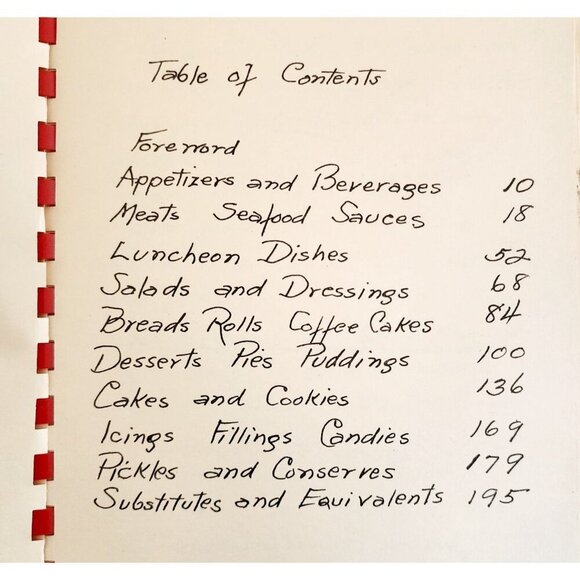 Table of Contents
Foreword
Appetizers and Beverages 10
Meats Seafood Sauces 18
Luncheon Dishes 52
Salads and Dressings 68
Breads Rolls Coffee Cakes 84
Desserts Pies Puddings 100
Cakes and Cookies 136
Icings Fillings Candies 169
Pickles and Conserves 179
Substitutes and Equivalents 195